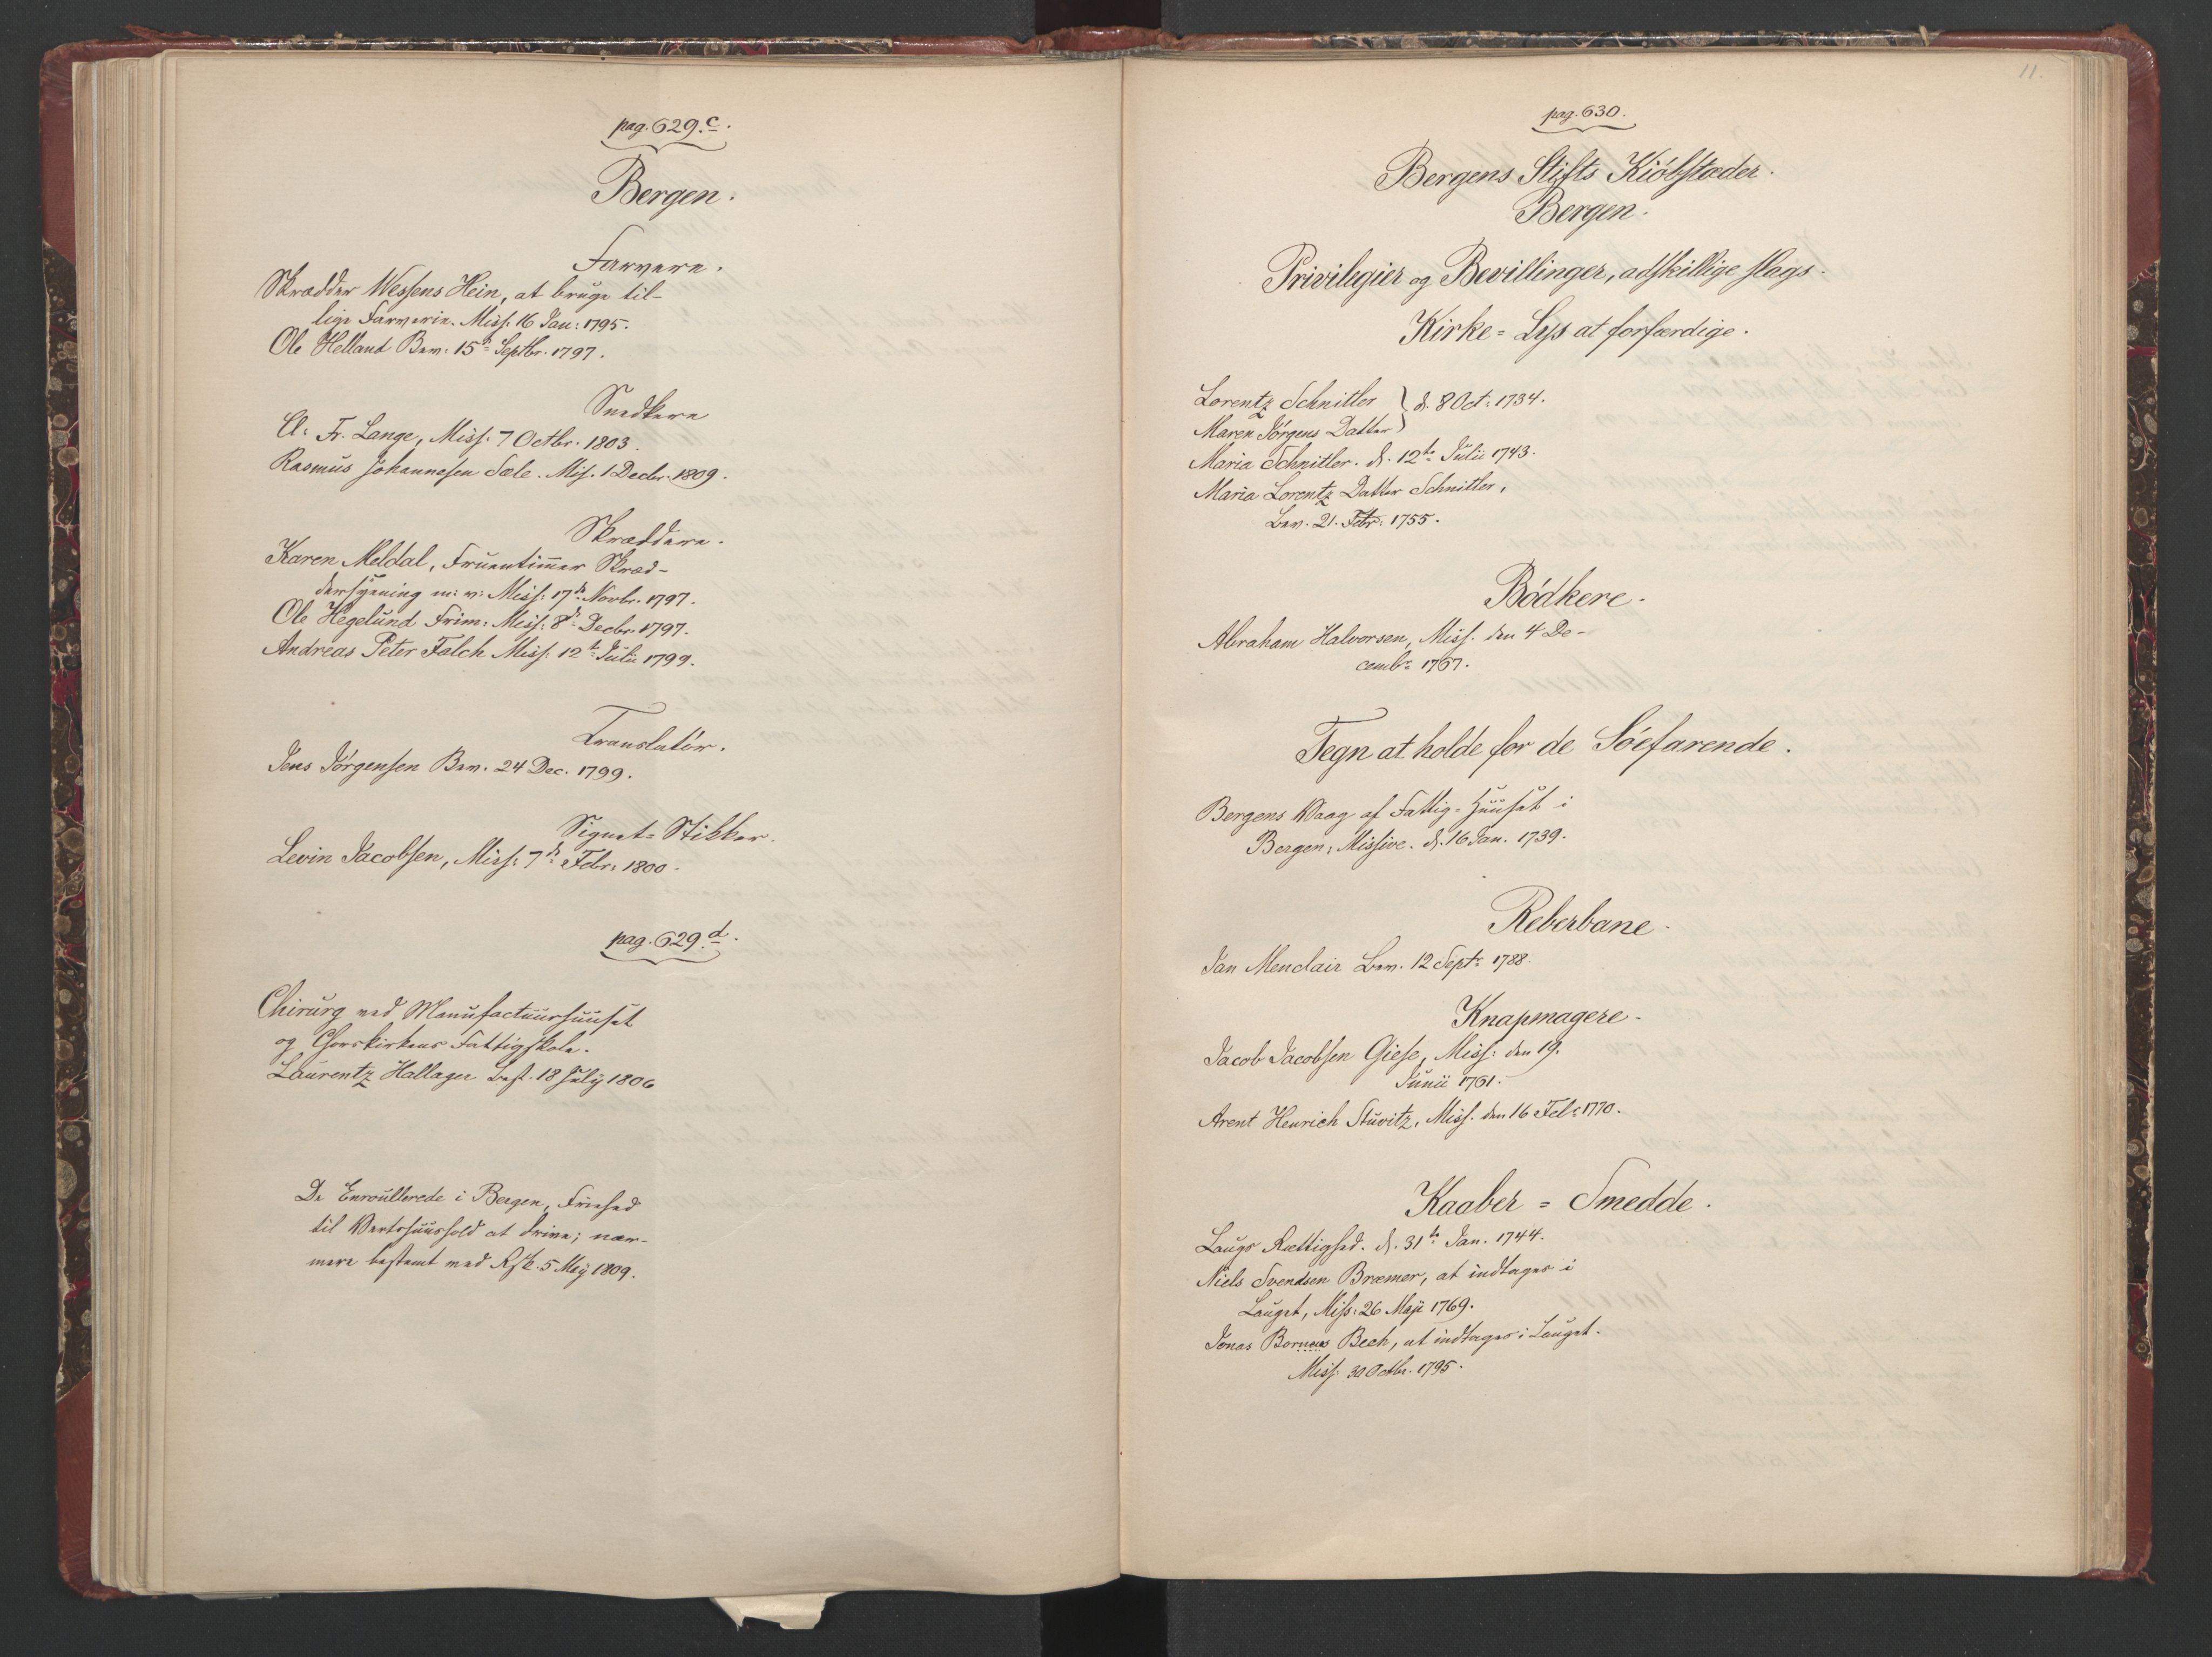 pag. 629.c.
Bergen.
Farvere.
Skrædder Wessens Hein, at bruge til-
lige Farverie. Miss: 16 Jan: 1795.
Ole Helland Bev: 15de Septbr. 1797.
Snedkere
Cl: Fr. Lange, Miss: 7 Octbr. 1803.
Rasmus Johannesen Sæle. Miss. 1 Decbr. 1809.
Skræddere.
Karen Meldal, Fruentimer Skræd-
dersyening m: v: Miss: 17de Novbr. 1797.
Ole Hegelund Frim: Miss: 8de Decbr 1797.
Andreas Peter Falch Miss: 12te Julii 1799.
Translatør.
Jens Jørgensen Bev. 24 Dec. 1799.
Signet=Stikker.
Levin Jacobsen, Miss: 7de Febr: 1800.
pag. 629.d.
Chirurg ved Manufacturhuuset
og Chorskirkens Fattigskole.
Laurentz Hallager best. 18 July 1806
De Enroullerede i Bergen, Friehed
til Vertshuushold at drive; nær-
mere bestemt med Rskr. 5 Maij 1809.
11.
pag. 630.
Bergens Stifts Kiöbstæder.
Bergen.
Privilegier og Bevillinger, adskillige slags.
Kirke=Lys at forfærdige.
Lorentz Schnitler } d. 8 Oct: 1734.
Maren Jörgens Datter
Maria Schnitler. d. 12te Julii 1743.
Maria Lorentz Datter Schnitler,
Bev. 21. Febr: 1755.
Bödkere.
Abraham Halvorsen, Miss. den 4 De-
cembr 1767.
Tegn at holde for de Söefarende.
Bergens Vaag af Fattig=Huuset i
Bergen, Missive. d. 16 Jan. 1739.
Reberbane.
Jan Menclair Bev. 12 Septr 1788.
Knapmagere.
Jacob Jacobsen Giese, Miss: den 19.
Junii 1761.
Arent Henrich Stuvitz, Miss. den 16 Febr 1770.
Kaaber=Smedde.
Laugs Rettighed. d. 31te Jan. 1744.
Niels Svendsen Bræmer, at indtages i
Lauget, Miss: 26 Maji 1769.
Jonas Borneus Bech, at indtages i Lauget.
Miss. 30 Octbr. 1795.